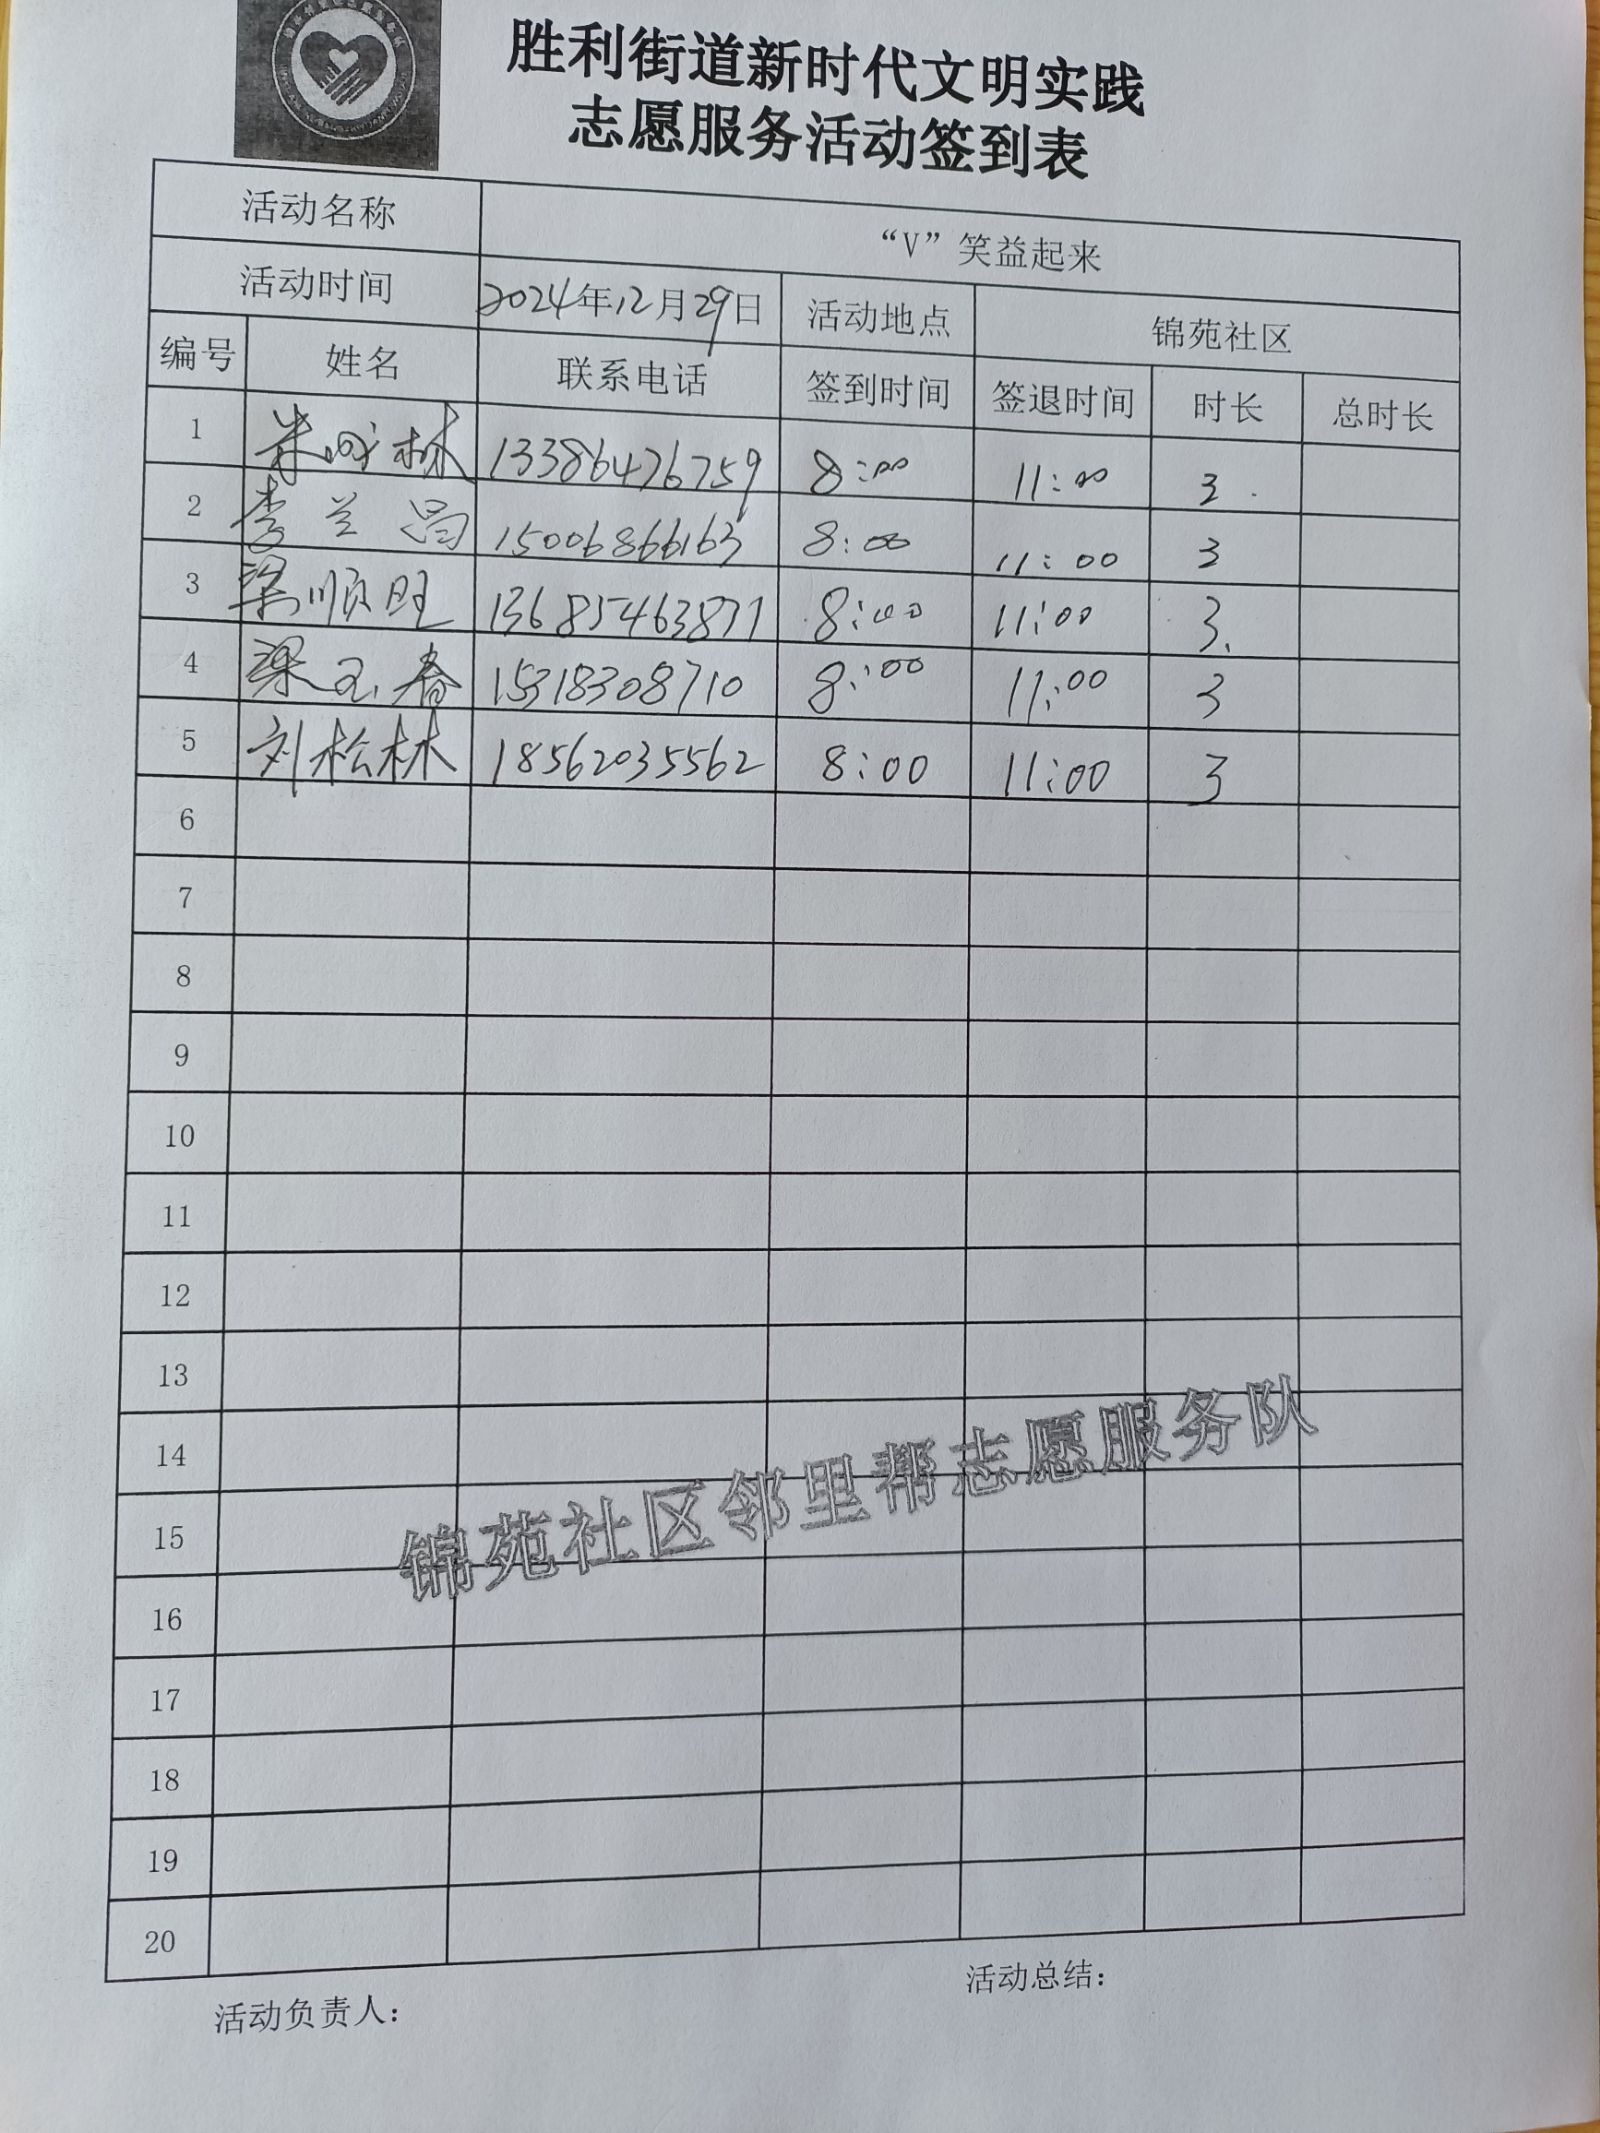 胜利街道新时代文明实践
志愿服务活动签到表
活动名称 “V”笑益起来
活动时间 2024年12月29日 活动地点 锦苑社区
编号 姓名 联系电话 签到时间 签退时间 时长 总时长
1 林 13386476759 8:00 11:00 3
2 李兰昌 15006866163 8:00 11:00 3
3 梁顺旺 13685463871 8:00 11:00 3
4 梁玉春 15318308710 8:00 11:00 3
5 刘松林 18562035562 8:00 11:00 3
6
7
8
9
10
11
12
13
14
15
16
17
18
19
20
锦苑社区邻里帮志愿服务队
活动负责人： 活动总结：